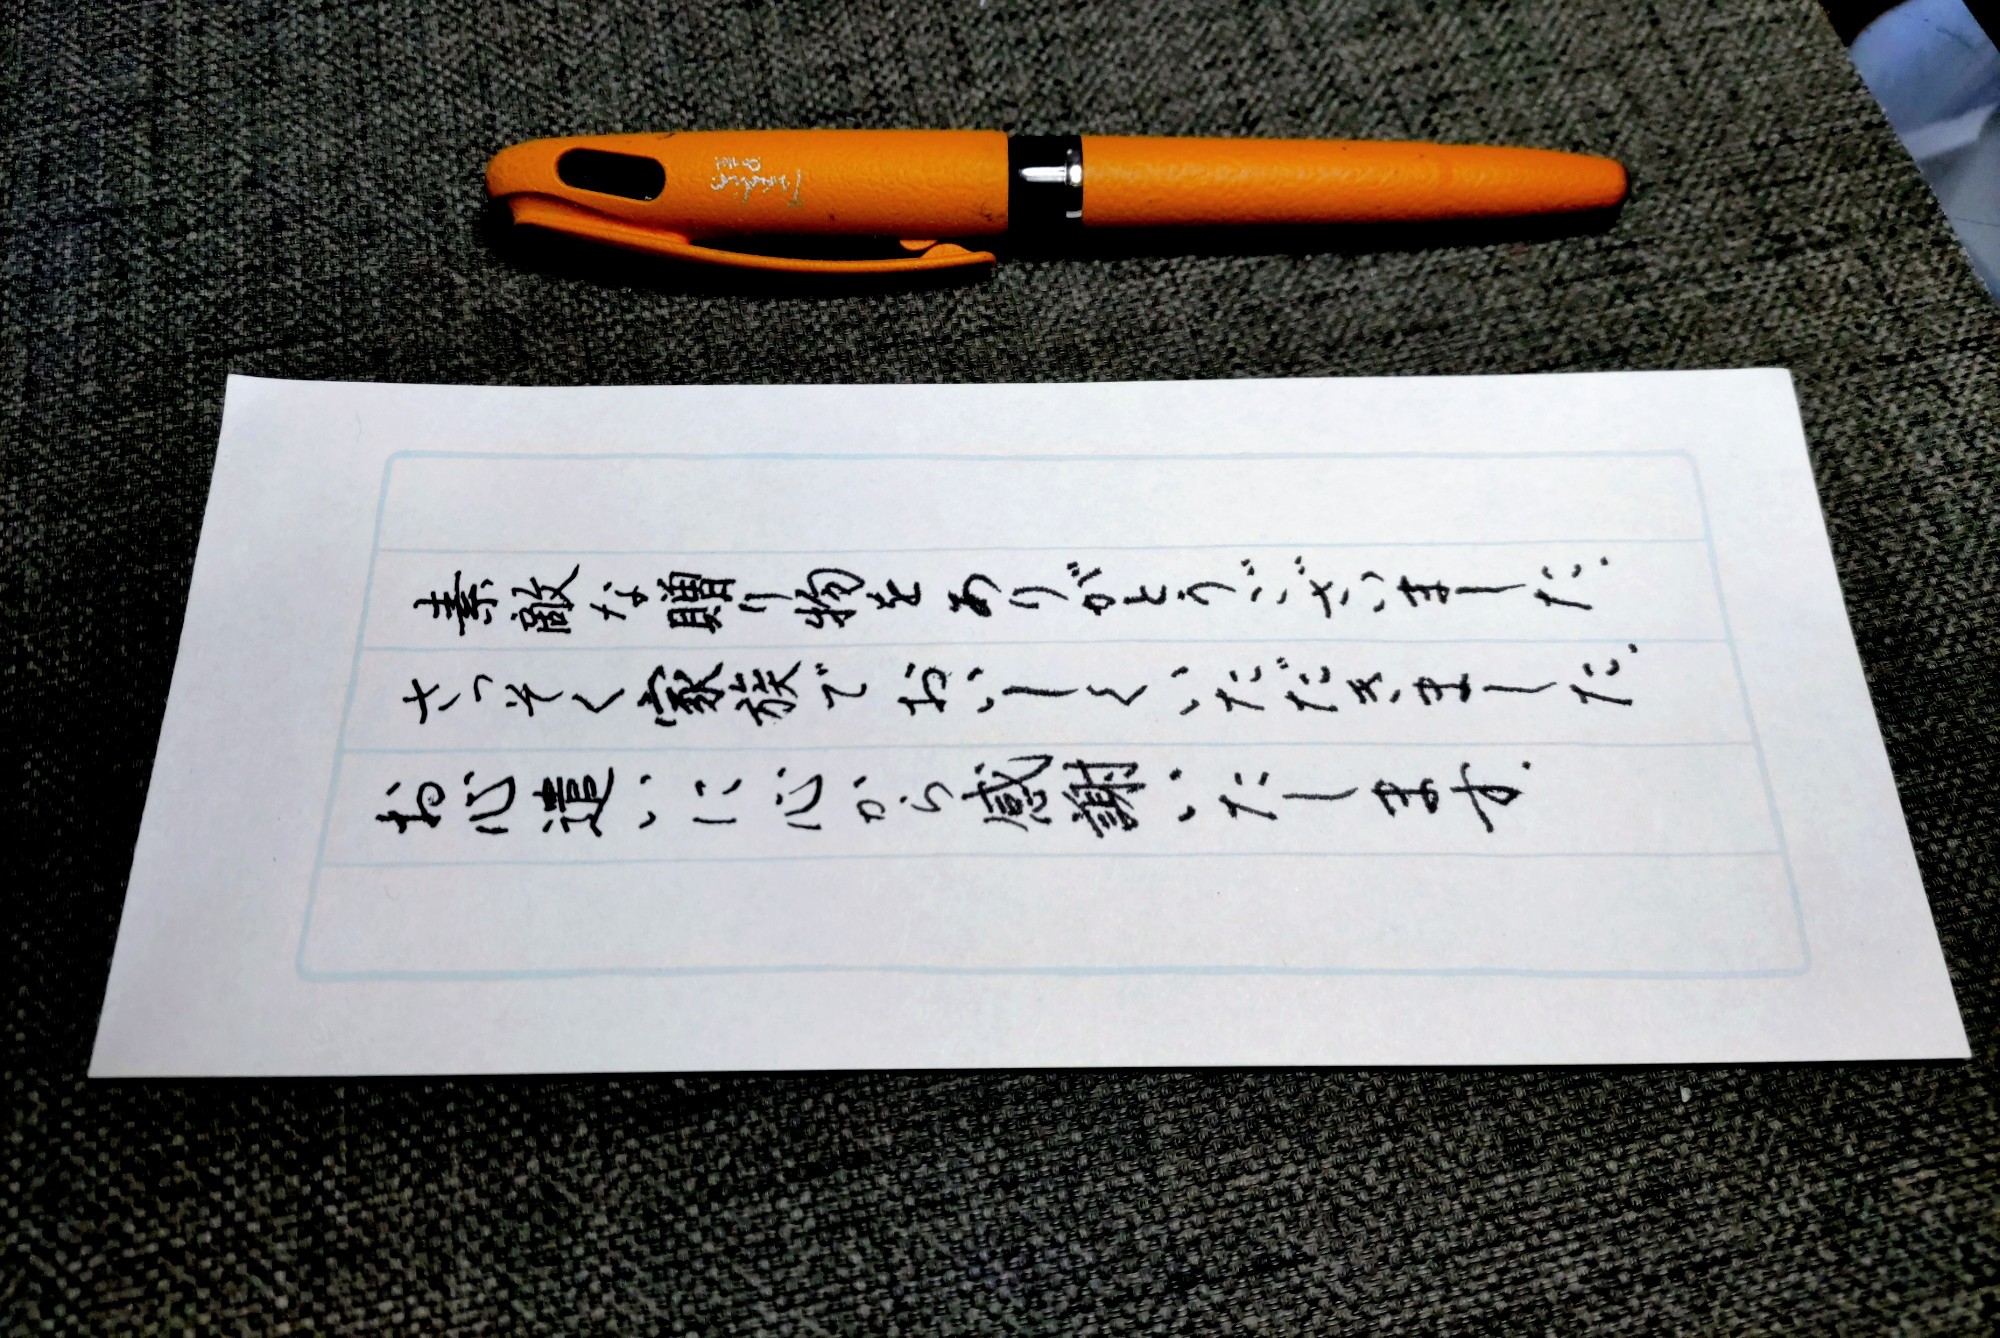 素敵な贈り物をありがとうございました.
さっそく家族でおいしくいただきました.
お心遣いに心から感謝いたします.
Tradio
Pentel